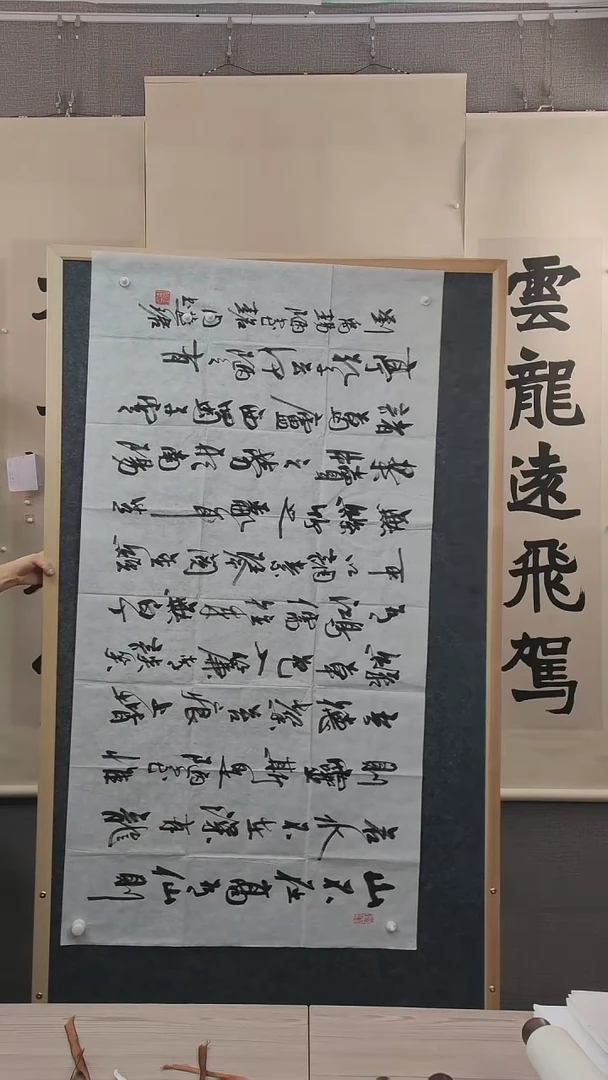 山不在高有仙則
名水不在深有龍
則靈斯是陋室惟
吾德馨苔痕上階
綠草色入簾青談笑
有鴻儒往來無白丁
可以調素琴閱金經
無絲竹之亂耳無
案牘之勞形南陽
諸葛廬西蜀子雲
亭孔子云何陋之有
劉禹錫陋室銘
雲龍遠飛駕